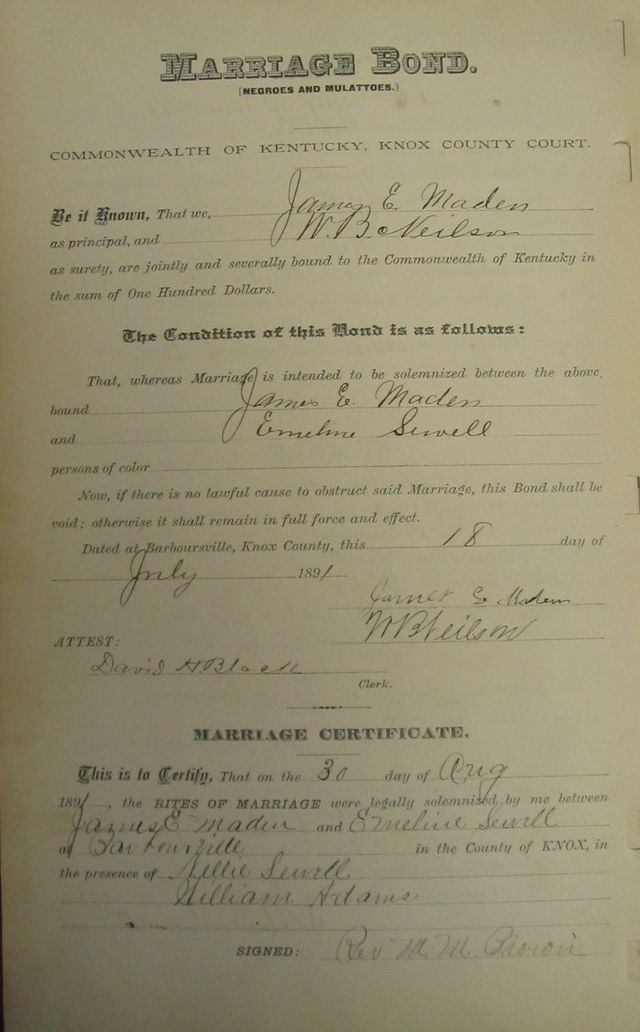 MARRIAGE BOND.
[NEGROES AND MULATTOES.]
COMMONWEALTH OF KENTUCKY, KNOX COUNTY COURT.
Be it Known, That we, James E. Maden
as principal, and W. B. Neilson
as surety, are jointly and severally bound to the Commonwealth of Kentucky in
the sum of One Hundred Dollars.
The Condition of this Bond is as follows:
That, whereas Marriage is intended to be solemnized between the above
bound James E. Maden
and Emeline Sewell
persons of color
Now, if there is no lawful cause to obstruct said Marriage, this Bond shall be
void; otherwise it shall remain in full force and effect.
Dated at Barboursville, Knox County, this 18 day of
July 1891
James E Maden
W B Neilson
ATTEST:
David H Black
Clerk.
MARRIAGE CERTIFICATE.
This is to Certify, That on the 30 day of Aug
1891, the RITES OF MARRIAGE were legally solemnized by me between
James E Maden and Emeline Sewell
at Barbourville in the County of KNOX, in
the presence of Nellie Sewell
William Adams
SIGNED: Rev M. M. Brown